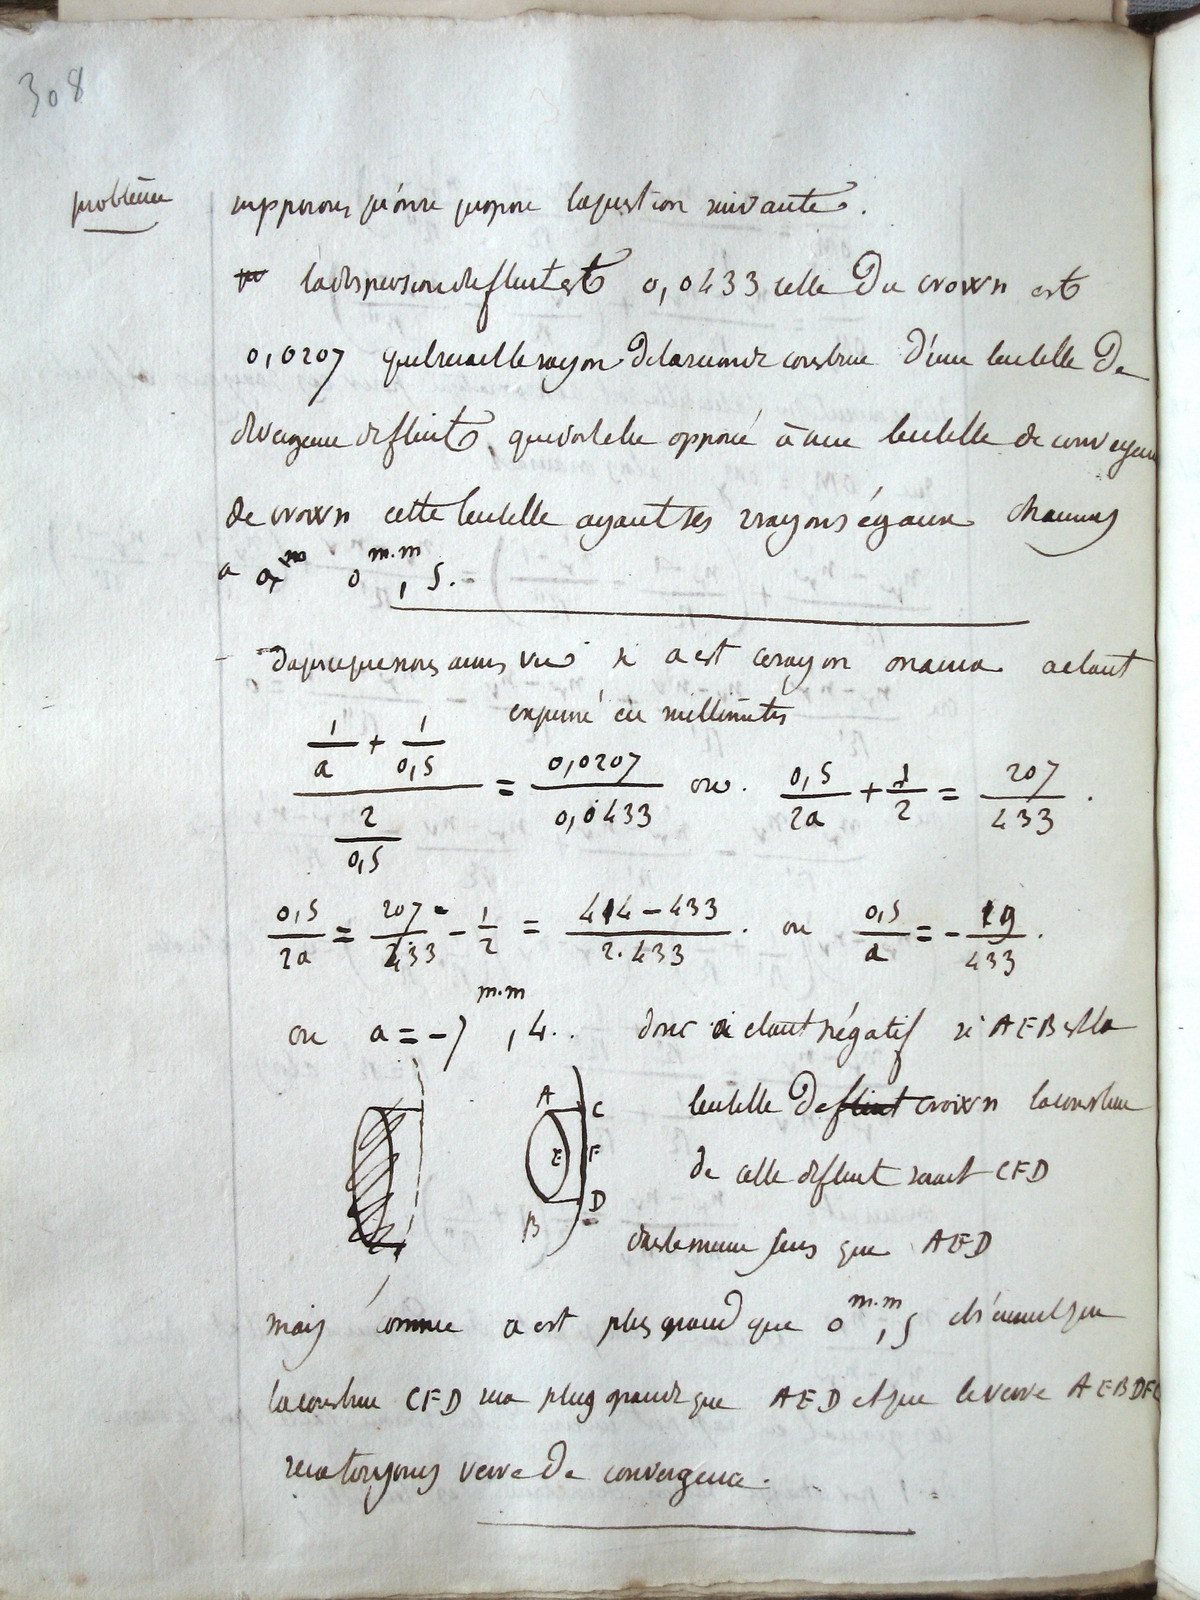 308
problême
supposons qu'on se propose la question suivante.
la dispersion de flint est 0,0433 celle Du crown est
0,0207 quel sera le rayon De la seconde courbure D'une lentille De
divergence de flint qui doit être opposé à une lentille de convergence
de crown cette lentille ayant ses 2 rayons égaux chacuns
a 0 m.m , 5.
D'après que nous avons vu si a est ce rayon on aura a etant
exprimé en millimètres
\frac{\frac{1}{a} + \frac{1}{0,5}}{\frac{2}{0,5}} = \frac{0,0207}{0,0433} ou. \frac{0,5}{2a} + \frac{1}{2} = \frac{207}{433}.
\frac{0,5}{2a} = \frac{207}{433} - \frac{1}{2} = \frac{414-433}{2.433}. ou \frac{0,5}{a} = -\frac{19}{433}.
ou a = -) m.m , 4.. donc a etant négatif si AEB est la
A C
E F
B D
lentille De flint crown la courbure
de celle de flint serait CFD
dans le meme sens que AED
mais comme a est plus grand que 0 m.m , 5 il s'ensuit que
la courbure CFD sera plus grande que AED et que le verre AEBDFC
sera toujours verre De convergence.